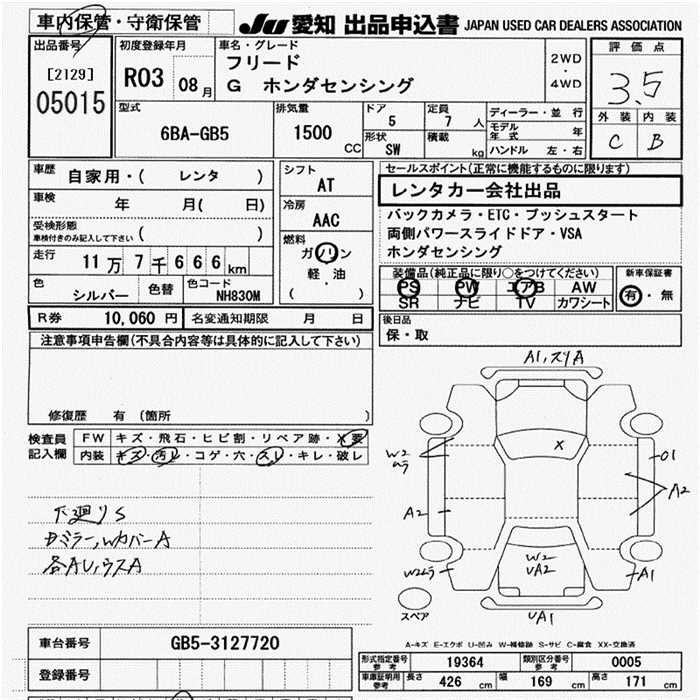 車内保管・守衛保管
JU 愛知 出品申込書 JAPAN USED CAR DEALERS ASSOCIATION
出品番号
[2129]
05015
初度登録年月
R03 08月
車名・グレード
フリード
G ホンダセンシング
2WD
・
4WD
評価点
3.5
外装 内装
C B
型式
6BA-GB5
排気量
1500 CC
ドア
5
定員
7 人
形状
SW
積載
kg
ディーラー・並行
モデル年式 年
ハンドル 左・右
車歴 自家用・( レンタ )
車検 年 月( 日)
受検形態
車検付きのみ記入して下さい ( )
走行 11万7千666km
色 シルバー 色替 色コード NH830M
シフト
AT
冷房
AAC
燃料
ガソリン
軽・油
( )
セールスポイント(正常に機能するものに限ります)
レンタカー会社出品
バックカメラ・ETC・プッシュスタート
両側パワースライドドア・VSA
ホンダセンシング
装備品(純正品に限り○をつけてください)
PS PW エアB AW
SR ナビ TV カワシート
新車保証書
有・無
R券 10,060 円 名変通知期限 月 日
後日品
保・取
注意事項申告欄(不具合内容等は具体的に記入して下さい)
修復歴 有 (箇所 )
検査員記入欄
FW キズ・飛石・ヒビ割・リペア跡・X要
内装 キズ・汚レ・コゲ・穴・スレ・キレ・破レ
下廻りS
ドミラー,WカバーA
各AU,ウスA
A1,スリA
X
W2
ムラ
O1
A2
A2
W2
UA2
W2ムラ
A1
UA1
スペア
A-キズ E-エクボ U-凹み W-補修跡 S-サビ C-腐食 XX-交換済
車台番号 GB5-3127720
登録番号
形式指定番号 参考 19364 類別区分番号 参考 0005
車庫証明用 参考 長さ 426 cm 幅 169 cm 高さ 171 cm